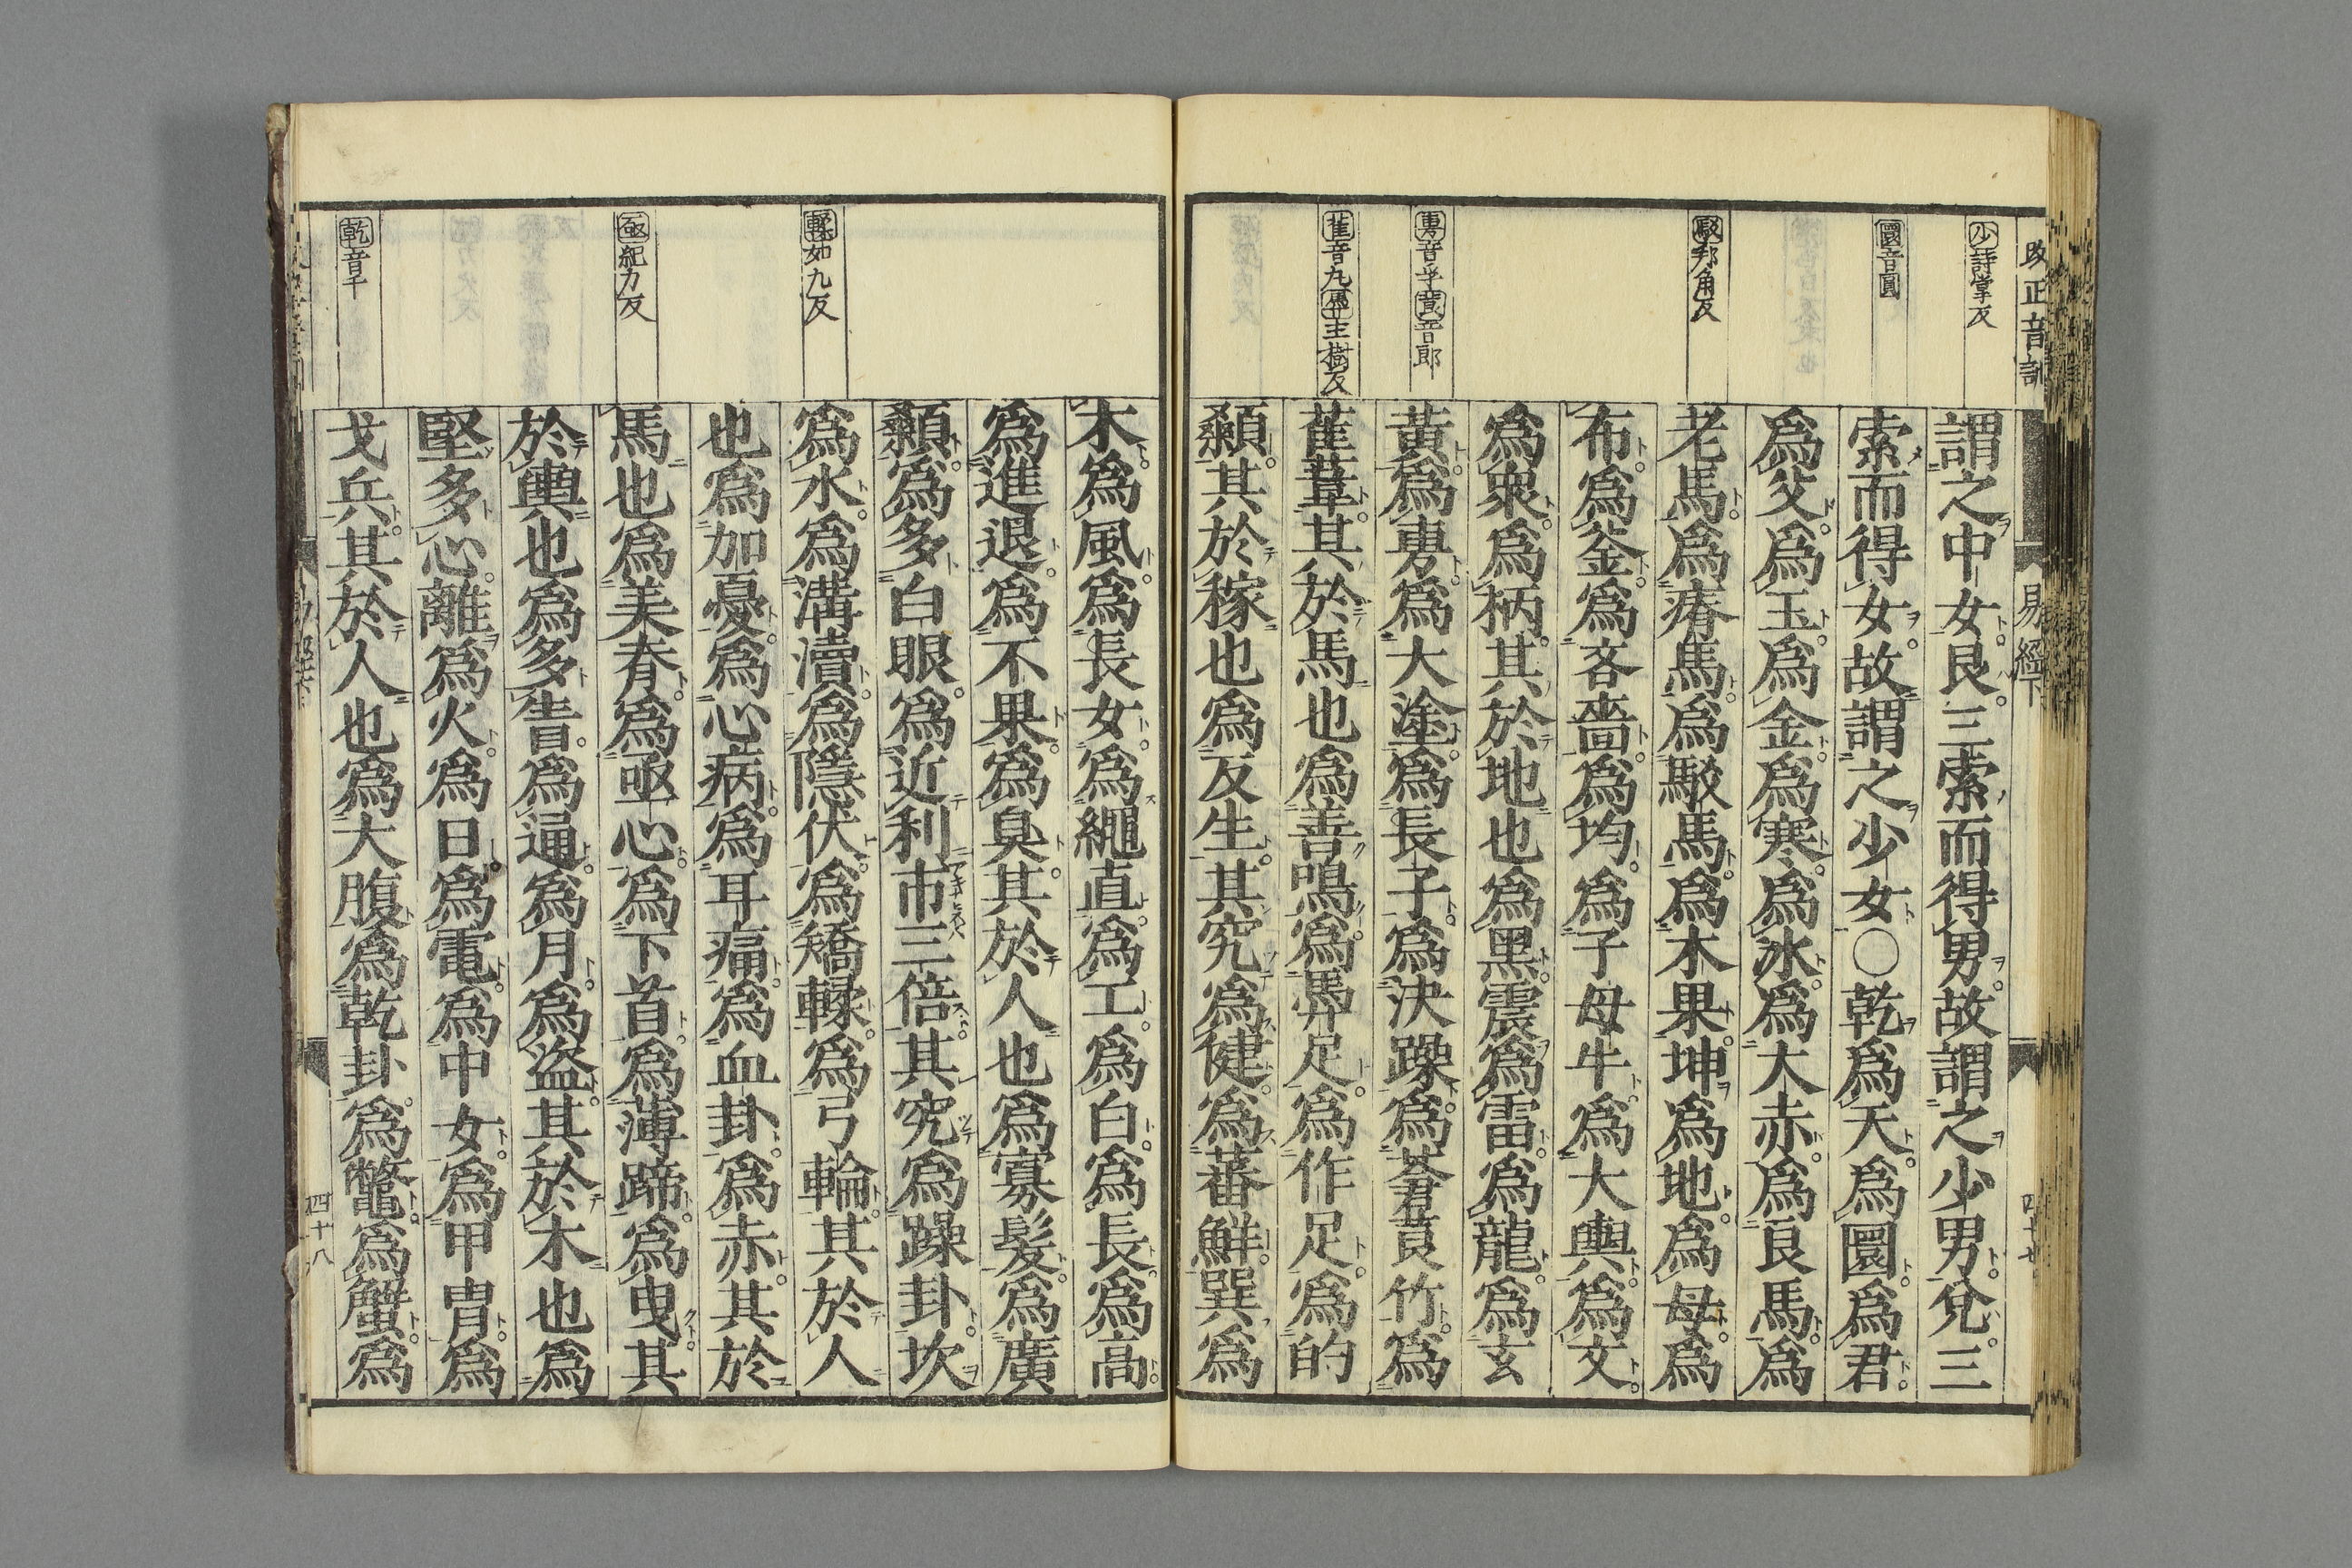 改正音訓
易經下
四十七
少詩掌反
圜音圓
駁邦角反
旉音孚筤音郎
萑音丸馵主樹反
謂之中女艮三索而得男故謂之少男兌三
索而得女故謂之少女○乾爲天爲圜爲君
爲父爲玉爲金爲寒爲冰爲大赤爲良馬爲
老馬爲瘠馬爲駁馬爲木果坤爲地爲母爲
布爲釜爲吝嗇爲均爲子母牛爲大輿爲文
爲衆爲柄其於地也爲黑震爲雷爲龍爲玄
黃爲旉爲大塗爲長子爲決躁爲蒼筤竹爲
萑葦其於馬也爲善鳴爲馵足爲作足爲的
顙其於稼也爲反生其究爲健爲蕃鮮巽爲
輮如九反
亟紀力反
乾音干
木爲風爲長女爲繩直爲工爲白爲長爲高
爲進退爲不果爲臭其於人也爲寡髮爲廣
顙爲多白眼爲近利市三倍其究爲躁卦坎
爲水爲溝瀆爲隱伏爲矯輮爲弓輪其於人
也爲加憂爲心病爲耳痛爲血卦爲赤其於
馬也爲美脊爲亟心爲下首爲薄蹄爲曳其
於輿也爲多眚爲通爲月爲盜其於木也爲
堅多心離爲火爲日爲電爲中女爲甲冑爲
戈兵其於人也爲大腹爲乾卦爲鼈爲蟹爲
四十八